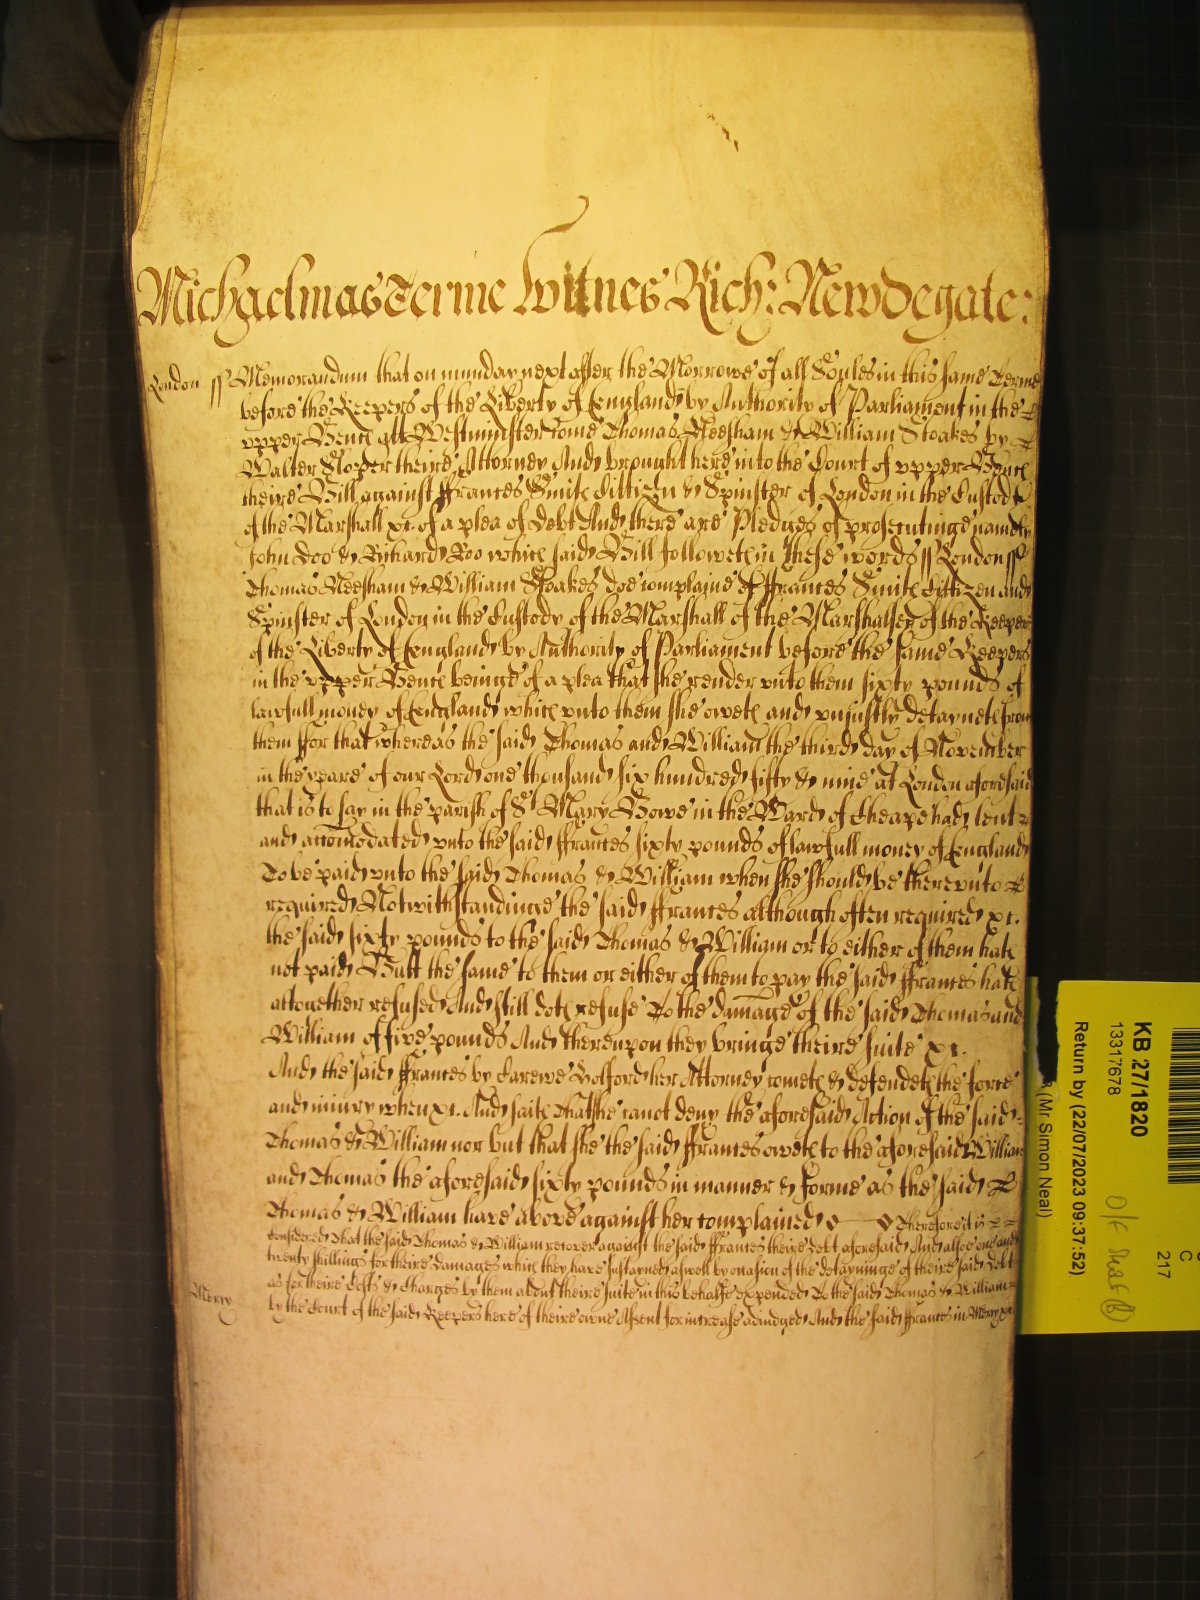 Michaelmas Terme Witnes Rich: Newdegate:
London ss Memorandum that on munday next after the Morrowe of all Soules in this same Terme
before the Keepers of the Liberty of England by Authority of Parliament in the
upper Bench att Westminster Come Thomas Neesham & William Stoakes by
Walter Sloper theire Attorney And brought here into the Court of upper Bench
theire Bill against ffrances Smith Cittizen & Spinster of London in the Custody
of the Marshall xc. of a plea of debt And there are Pledges of prosecutinge namely
John Doo & Richard Roo which said Bill followeth in these words ss London ss
Thomas Neesham & William Stoakes doe complaine of ffrances Smith Cittizen and
Spinster of London in the Custody of the Marshall of the Marshalsey of the Keepers
of the Liberty of England by Authority of Parliament before the same Keepers
in the upper Bench beinge of a plea that she render unto them sixty pounds of
lawfull money of England which unto them she oweth and unjustly detayneth from
them ffor that whereas the said Thomas and William the third day of November
in the yeare of our Lord one thousand six hundred fifty & nine at London aforesaid
that is to say in the parish of St Mary Bowe in the Ward of Cheape had lent
and accomodated unto the said ffrances sixty pounds of lawfull money of England
To be paid unto the said Thomas & William when she should be thereunto
required Notwithstandinge the said ffrances although often required xc.
the said sixty pounds to the said Thomas & William or to either of them hath
not paid Butt the same to them or either of them to pay the said ffrances hath
altogether refused And still doth refuse To the damage of the said Thomas and
William of five pounds And thereupon they bringe theire suite xc.
And the said ffrances by Carewe her Attorney cometh & defendeth the force
and injury when xc. And saith That she canot deny the aforesaid Action of the said
Thomas & William nor but that she the said ffrances oweth to the aforesaid William
and Thomas the aforesaid sixty pounds in manner & forme as the said
Thomas & William have above against her complained Therefore it is
Considered that the said Thomas & William recover against the said ffrances theire debt aforesaid And alsoe one and
twenty shillings for theire damages which they have sustayned aswell by occasion of the detayninge of theire said debt
as for theire Costs & Charges by them about theire suite in this behalfe expended To the said Thomas & William
Mercy by the Court of the said Keepers here of theire owne Assent for increase adiudged And the said ffrances in Mercy xc
KB 27/1820
13317678
Return by (22/07/2023 09:37:52)
(Mr Simon Neal)
C
217